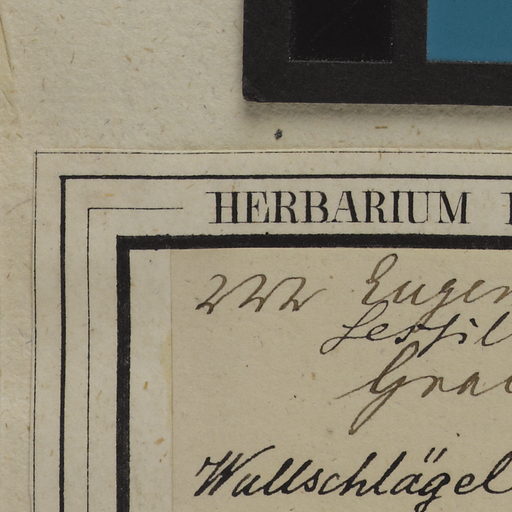 HERBARIUM
222 Eugen
sessil
Gra
Wullschlägel